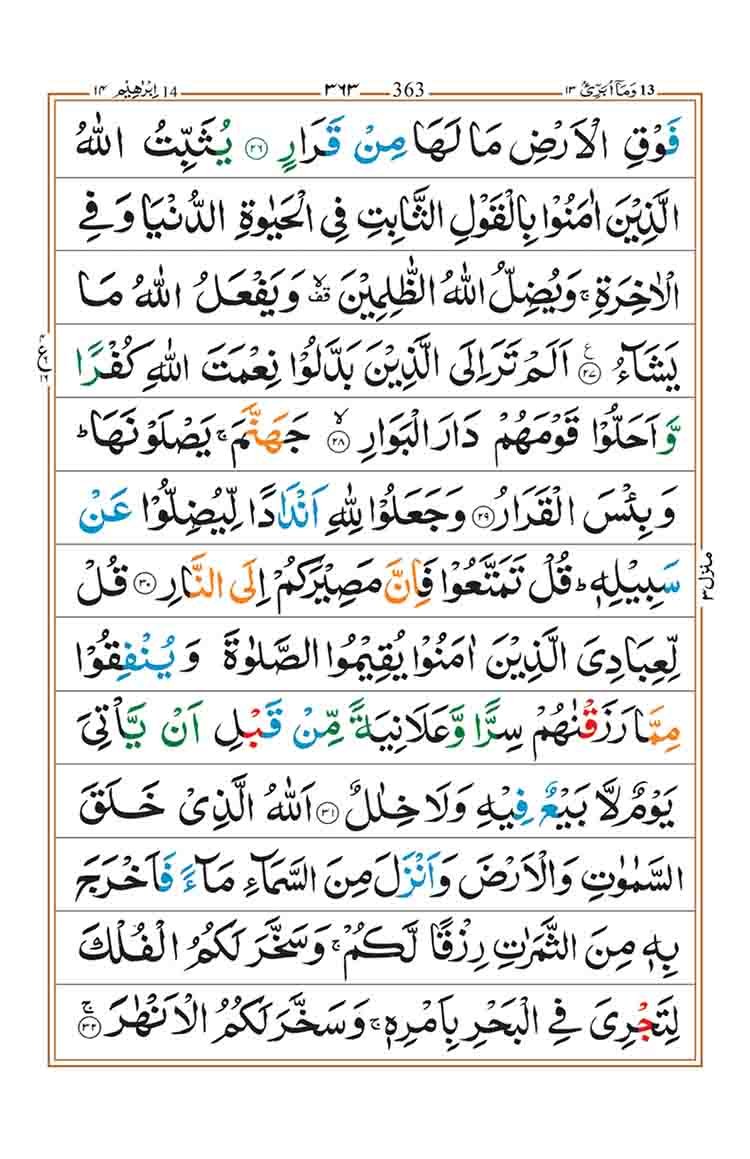 13 وَمَاۤ اُبَرِّئُ ۱۳ 363 ۳۶۳ 14 اِبْرٰهِيْم ۱۴
فَوْقِ الْاَرْضِ مَا لَهَا مِنْ قَرَارٍ ۝۲۶ يُثَبِّتُ اللّٰهُ
الَّذِيْنَ اٰمَنُوْا بِالْقَوْلِ الثَّابِتِ فِى الْحَيٰوةِ الدُّنْيَا وَفِى
الْاٰخِرَةِ ۚ وَيُضِلُّ اللّٰهُ الظّٰلِمِيْنَ ۙ قف وَيَفْعَلُ اللّٰهُ مَا
يَشَآءُ ۝۲۷ ع اَلَمْ تَرَ اِلَى الَّذِيْنَ بَدَّلُوْا نِعْمَتَ اللّٰهِ كُفْرًا
وَّاَحَلُّوْا قَوْمَهُمْ دَارَ الْبَوَارِ ۙ ۝۲۸ جَهَنَّمَ ۚ يَصْلَوْنَهَا ؕ
وَبِئْسَ الْقَرَارُ ۝۲۹ وَجَعَلُوْا لِلّٰهِ اَنْدَادًا لِّيُضِلُّوْا عَنْ
سَبِيْلِهٖ ؕ قُلْ تَمَتَّعُوْا فَاِنَّ مَصِيْرَكُمْ اِلَى النَّارِ ۝۳۰ قُلْ
لِّعِبَادِىَ الَّذِيْنَ اٰمَنُوْا يُقِيْمُوا الصَّلٰوةَ وَيُنْفِقُوْا
مِمَّا رَزَقْنٰهُمْ سِرًّا وَّعَلَانِيَةً مِّنْ قَبْلِ اَنْ يَّاْتِىَ
يَوْمٌ لَّا بَيْعٌ فِيْهِ وَلَا خِلٰلٌ ۝۳۱ اَللّٰهُ الَّذِىْ خَلَقَ
السَّمٰوٰتِ وَالْاَرْضَ وَاَنْزَلَ مِنَ السَّمَآءِ مَآءً فَاَخْرَجَ
بِهٖ مِنَ الثَّمَرٰتِ رِزْقًا لَّكُمْ ۚ وَسَخَّرَ لَكُمُ الْفُلْكَ
لِتَجْرِىَ فِى الْبَحْرِ بِاَمْرِهٖ ۚ وَسَخَّرَ لَكُمُ الْاَنْهٰرَ ۚ ۝۳۲
منزل ۳